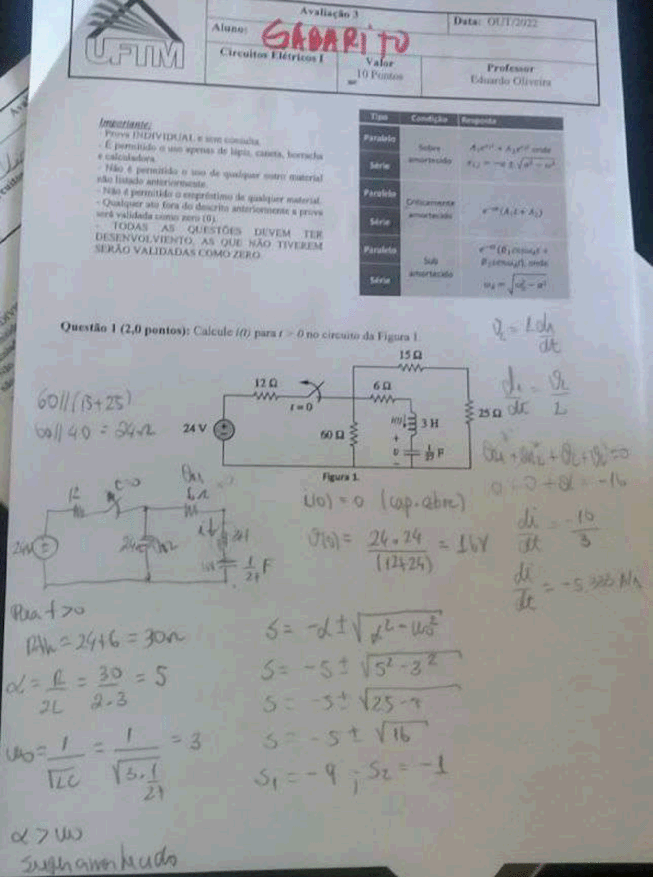 UFTM
Avaliação 3
Data: OUT/2022
Aluno: GABARITO
Circuitos Elétricos I
Valor
10 Pontos
Professor
Eduardo Oliveira
Importante:
- Prova INDIVIDUAL e sem consulta.
- É permitido o uso apenas de lápis, caneta, borracha
e calculadora.
- Não é permitido o uso de qualquer outro material
não listado anteriormente.
- Não é permitido o empréstimo de qualquer material.
- Qualquer ato fora do descrito anteriormente a prova
será validada como zero (0).
- TODAS AS QUESTÕES DEVEM TER
DESENVOLVIENTO, AS QUE NÃO TIVEREM
SERÃO VALIDADAS COMO ZERO.
Tipo Condição Resposta
Paralelo
Série
Sobre
amortecido
Paralelo
Série
Criticamente
amortecido
Paralelo
Série
Sub
amortecido
Questão 1 (2,0 pontos): Calcule i(t) para t > 0 no circuito da Figura 1.
15 Ω
12 Ω
t=0
6 Ω
24 V
60 Ω
i(t)
3 H
25 Ω
+
v
-
1/27 F
Figura 1.
60//(15+25)
60//40 = 24Ω
t=0
1/27 F
i(0) = 0 (cap. abre)
v(0) = 24.24/(12+24) = 16V
= L di/dt
di/dt =
= -16
di/dt = /3
di/dt = -5.333 A/s
Para t>0
Rth = 24+6 = 30Ω
α = R/2L = 30/2.3 = 5
ω0 = 1/√LC = 1/√3.1/27 = 3
α > ω0
S = -α ± √α² - ω0²
S = -5 ± √5² - 3²
S = -5 ± √25 -
S = -5 ± √16
S1 = -9 ; S2 = -1